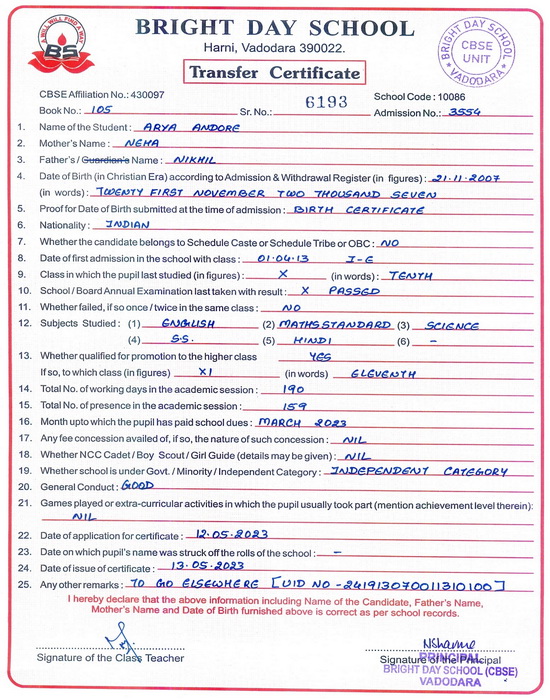 A WILL WILL FIND A WAY
BS
BRIGHT DAY SCHOOL
Harni, Vadodara 390022.
Transfer Certificate
BRIGHT DAY SCHOOL
CBSE
UNIT
VADODARA
CBSE Affiliation No.: 430097
School Code : 10086
Book No.: 105 Sr. No.: 6193 Admission No.: 3554
1. Name of the Student : ARYA ANDORE
2. Mother's Name : NEHA
3. Father's / Guardian's Name : NIKHIL
4. Date of Birth (in Christian Era) according to Admission & Withdrawal Register (in figures) : 21.11.2007
(in words) : TWENTY FIRST NOVEMBER TWO THOUSAND SEVEN
5. Proof for Date of Birth submitted at the time of admission : BIRTH CERTIFICATE
6. Nationality : INDIAN
7. Whether the candidate belongs to Schedule Caste or Schedule Tribe or OBC : NO
8. Date of first admission in the school with class : 01.04.13 I-E
9. Class in which the pupil last studied (in figures) : X (in words) : TENTH
10. School / Board Annual Examination last taken with result : X PASSED
11. Whether failed, if so once / twice in the same class : NO
12. Subjects Studied : (1) ENGLISH (2) MATHS STANDARD (3) SCIENCE
(4) S.S. (5) HINDI (6) –
13. Whether qualified for promotion to the higher class YES
If so, to which class (in figures) XI (in words) ELEVENTH
14. Total No. of working days in the academic session : 190
15. Total No. of presence in the academic session : 159
16. Month upto which the pupil has paid school dues : MARCH 2023
17. Any fee concession availed of, if so, the nature of such concession : NIL
18. Whether NCC Cadet / Boy Scout / Girl Guide (details may be given) : NIL
19. Whether school is under Govt. / Minority / Independent Category : INDEPENDENT CATEGORY
20. General Conduct : GOOD
21. Games played or extra-curricular activities in which the pupil usually took part (mention achievement level therein) :
NIL
22. Date of application for certificate : 12.05.2023
23. Date on which pupil's name was struck off the rolls of the school : –
24. Date of issue of certificate : 13.05.2023
25. Any other remarks : TO GO ELSEWHERE [UID NO - 241913070011310100]
I hereby declare that the above information including Name of the Candidate, Father's Name,
Mother's Name and Date of Birth furnished above is correct as per school records.
Signature of the Class Teacher
Signature of the Principal
PRINCIPAL
BRIGHT DAY SCHOOL (CBSE)
VADODARA